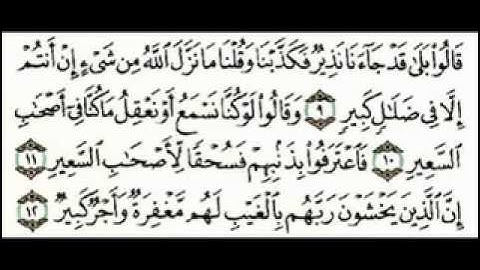 قَالُوا۟ بَلَىٰ قَدْ جَآءَنَا نَذِيرٌ فَكَذَّبْنَا وَقُلْنَا مَا نَزَّلَ ٱللَّهُ مِن شَىْءٍ إِنْ أَنتُمْ
إِلَّا فِى ضَلَٰلٍ كَبِيرٍ ٩ وَقَالُوا۟ لَوْ كُنَّا نَسْمَعُ أَوْ نَعْقِلُ مَا كُنَّا فِىٓ أَصْحَٰبِ
ٱلسَّعِيرِ ١٠ فَٱعْتَرَفُوا۟ بِذَنۢبِهِمْ فَسُحْقًا لِّأَصْحَٰبِ ٱلسَّعِيرِ ١١
إِنَّ ٱلَّذِينَ يَخْشَوْنَ رَبَّهُم بِٱلْغَيْبِ لَهُم مَّغْفِرَةٌ وَأَجْرٌ كَبِيرٌ ١٢